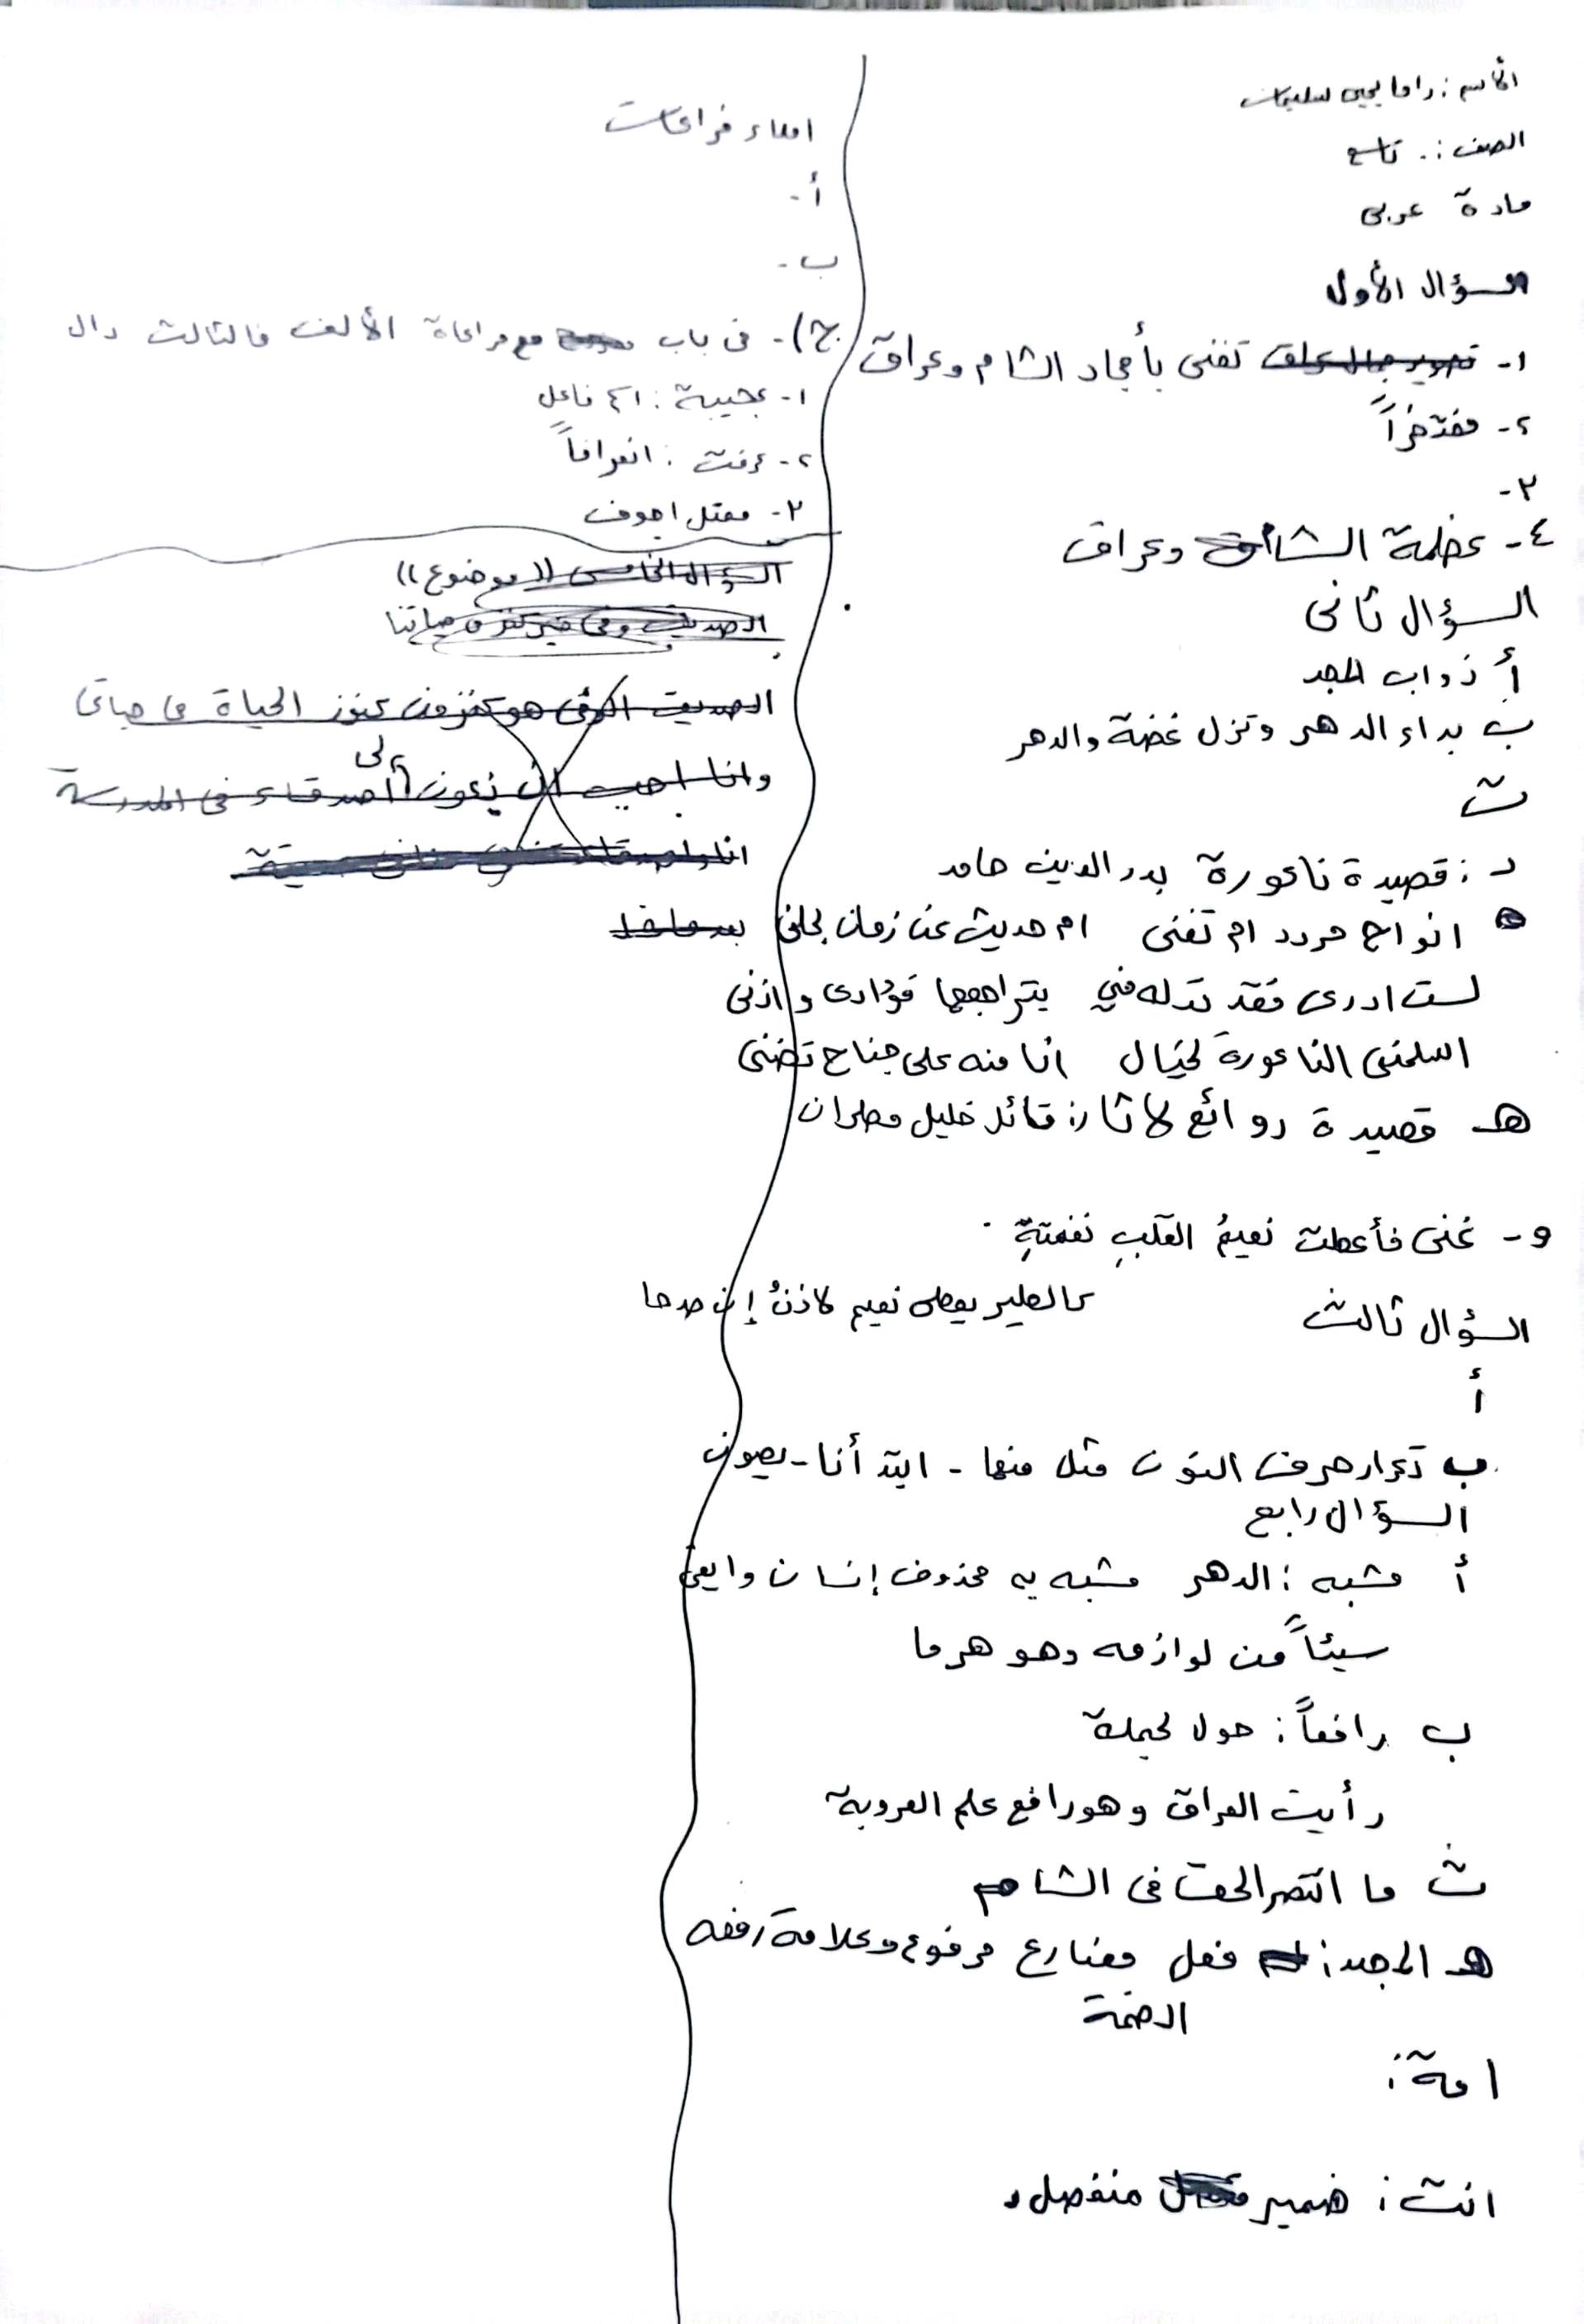 الأسم : راما يحيى سليمان
الصف : . تاسع
مادة عربي
السؤال الأول
١- تغنى بأمجاد الشام وعراق
٢- مفتخراً
٣-
٤- عظمة الشام وعراق
السؤال ثاني
أ ذواب المجد
ب بداء الدهر وتزل غضة والدهر
ت
د : قصيدة ناعورة بدر الدين حامد
انواح مردد ام تغنى ام حديث عن زمان
لست ادري فقد تدله مني يتراجعها فؤادي واذني
اسلمتني الناعورة لخيال انا منه على جناح تضني
هـ قصيدة روائع لاثار : قائد خليل مطران
و - غنى فأعطت نعيمُ القلبِ نغمتةِ .
كالطير يعطى نعيم لاذنُ إن صدحا
السؤال ثالث
أ
ب تكرار حرف النون مثل منها - ابتد أنا - يصون
السؤال رابع
أ مشبه : الدهر مشبه به محذوف إنسان وابقى
سيئاً من لوازمه وهو هرما
ب رافعاً : حول لجملة
رأيت العراق وهو رافع علم العروبة
ث ما انتصر الحق في الشام
هـ المجد : فعل مضارع مرفوع وعلامة رفعه
الضمة
امة :
انت : ضمير منفصل
املاء فراغات
أ -
ب -
ج) - في باب مع مراعاة الألف فالثالث دال
١- عجيبة : اسم فاعل
٢- عرفت : انعرافاً
٣- معتل اجوف
السؤال الخامس ((موضوع))
الصديق وفي خير كنز في حياتنا
الصديق الوفي هو كنز من كنوز الحياة في حياتي
وانا احب ان يكون لي أصدقاء في المدرسة